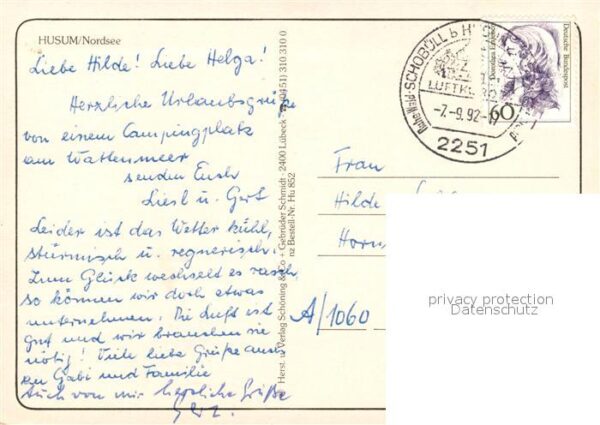 HUSUM/Nordsee
Liebe Hilde! Liebe Helga!
Herzliche Urlaubsgrüße
von einem Campingplatz
am Wattenmeer
senden Euch
Liesl u. Gert
Leider ist das Wetter kühl,
stürmisch u. regnerisch.
Zum Glück wechselt es rasch,
so können wir doch etwas
unternehmen. Die Luft ist
gut und wir brauchen sie
nötig! Viele liebe Grüße auch
an Gabi und Familie
Auch von mir herzliche Grüße
Herst. u. Verlag Schöning & Co + Gebrüder Schmidt · 2400 Lübeck · (0451) 310 310 0
nz Bestell-Nr. Hu 852
SCHOBÜLL b HUSUM
LUFTKURORT
-7.-9.92-17
2251
60
Deutsche Bundespost
Frau
Hilde
Horn
A/1060
privacy protection
Datenschutz